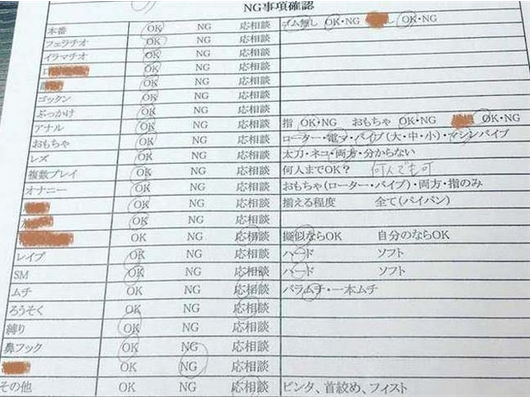 NG事項確認
本番 OK NG 応相談 ゴム無し OK・NG OK・NG
フェラチオ OK NG 応相談
イラマチオ OK NG 応相談
OK NG 応相談
OK NG 応相談
ゴックン OK NG 応相談
ぶっかけ OK NG 応相談
アナル OK NG 応相談 指 OK・NG おもちゃ OK・NG OK・NG
おもちゃ OK NG 応相談 ローター・電マ・バイブ(大・中・小)・マシンバイブ
レズ OK NG 応相談 太刀・ネコ・両方・分からない
複数プレイ OK NG 応相談 何人までOK? 何人でも可
オナニー OK NG 応相談 おもちゃ(ローター・バイブ)・両方・指のみ
OK NG 応相談 揃える程度 全て(パイパン)
OK NG 応相談
OK NG 応相談 擬似ならOK 自分のならOK
レイプ OK NG 応相談 ハード ソフト
SM OK NG 応相談 ハード ソフト
ムチ OK NG 応相談 バラムチ・一本ムチ
ろうそく OK NG 応相談
縛り OK NG 応相談
鼻フック OK NG 応相談
OK NG 応相談
その他 OK NG 応相談 ビンタ、首絞め、フィスト